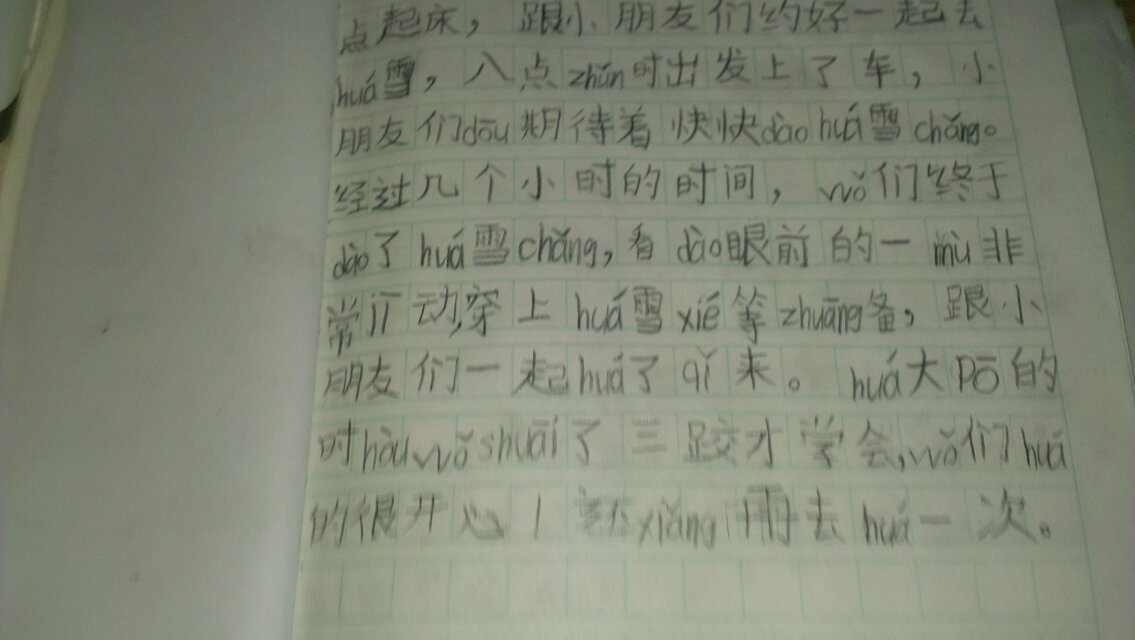 点起床，跟小朋友们约好一起去
huá雪，八点zhǔn时出发上了车，小
朋友们dōu期待着快快dào huá雪chǎng。
经过几个小时的时间，wǒ们终于
dào了huá雪chǎng，看dào眼前的一mù非
常jī动，穿上huá雪xié等zhuāng备，跟小
朋友们一起huá了qǐ来。huá大Pō的
时hòu wǒ shuāi了三跤才学会，wǒ们huá
的很开心！还xiǎng再去huá一次。